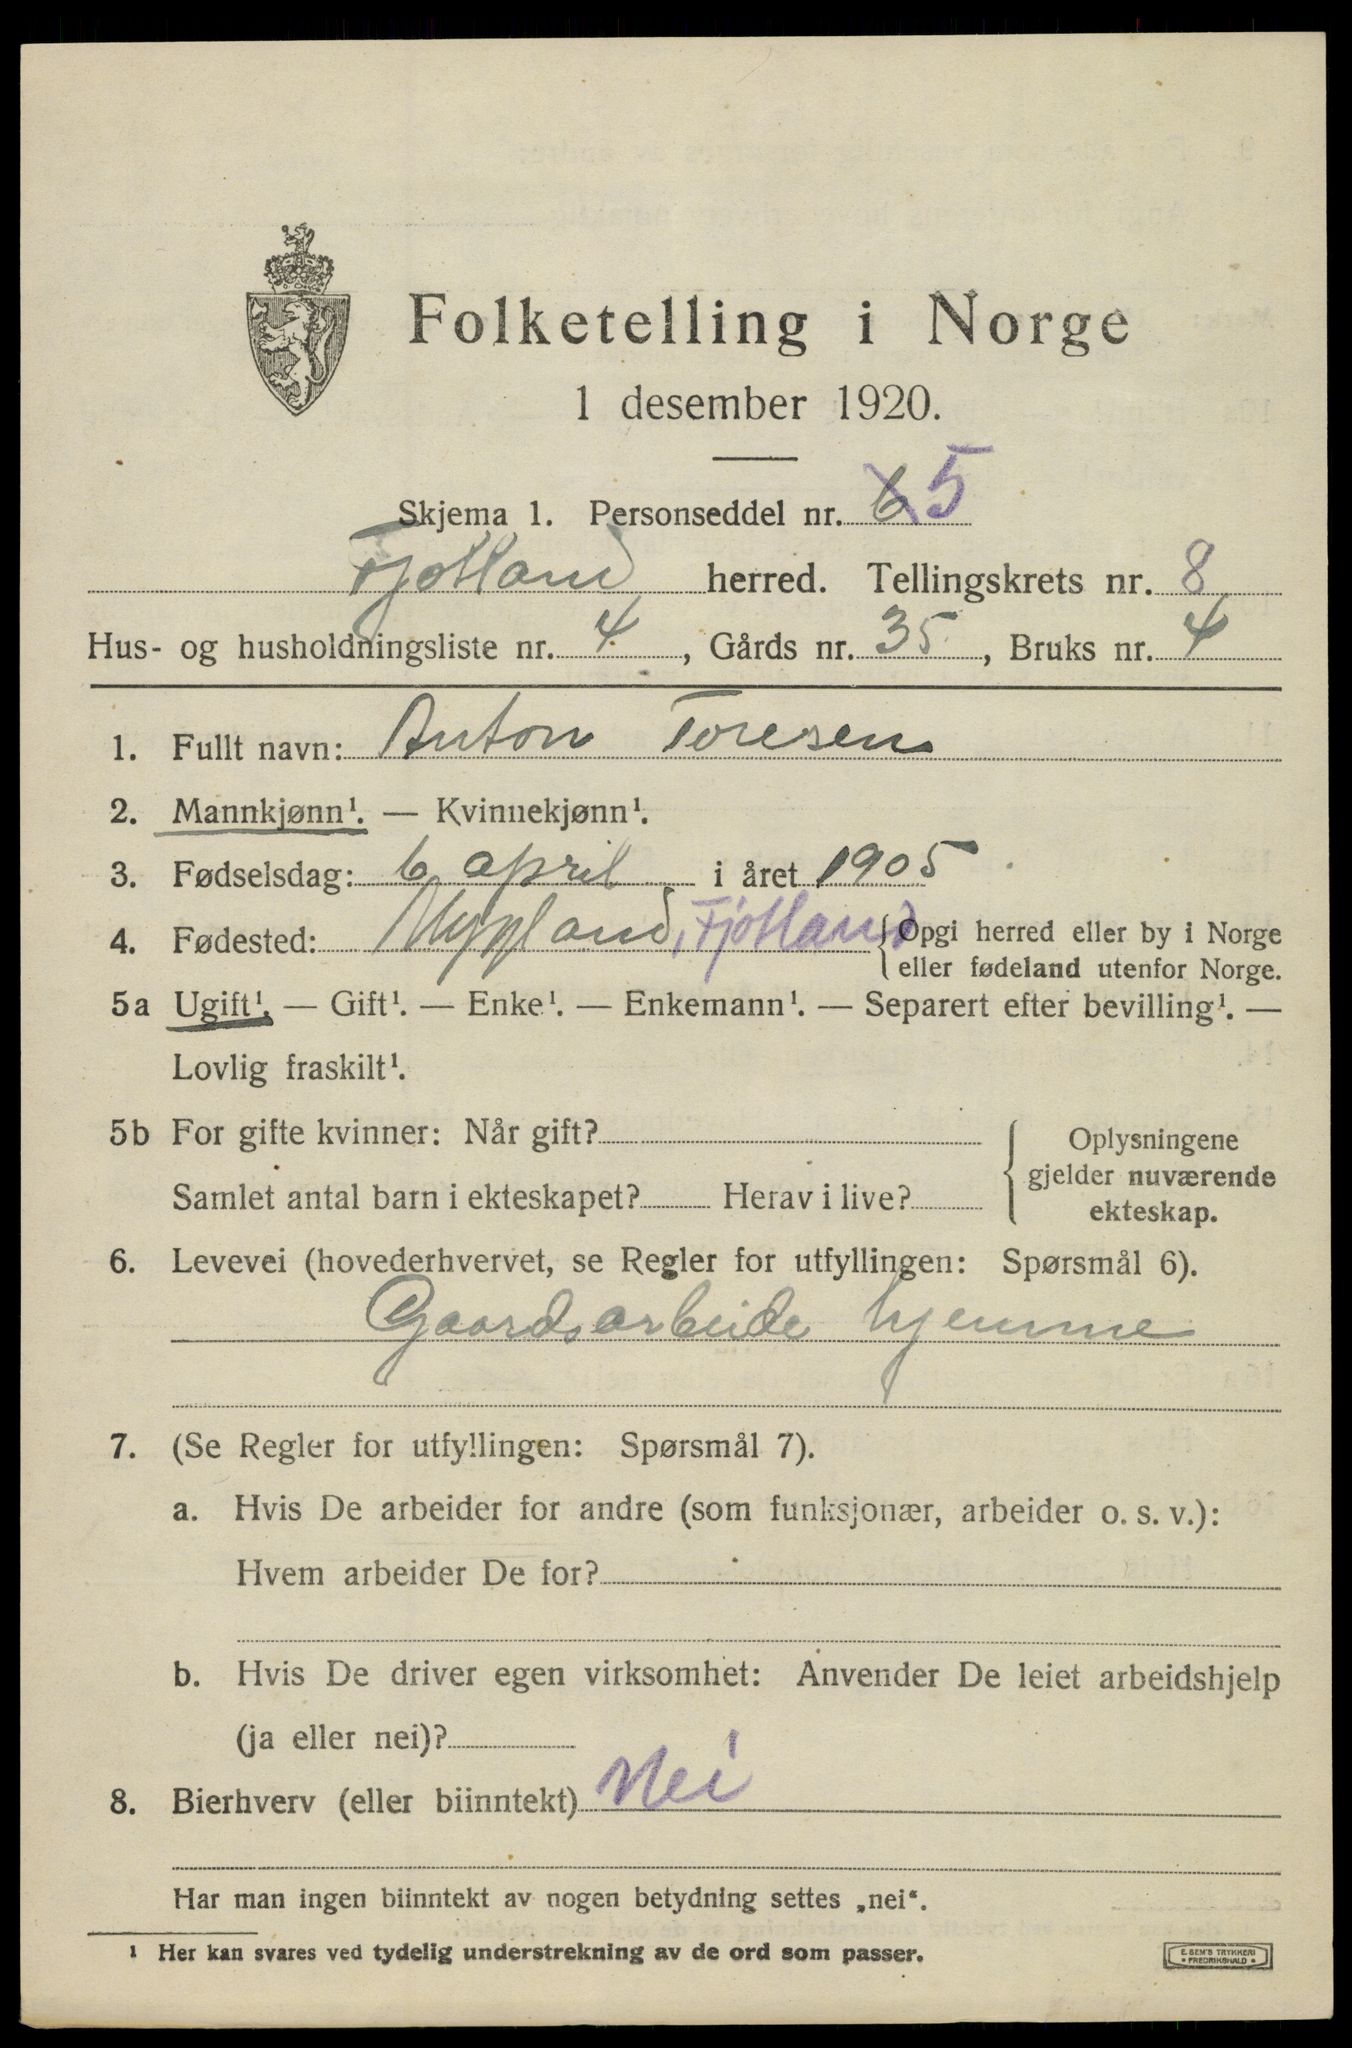 Folketelling i Norge
1 desember 1920.
Skjema 1. Personseddel nr. 6 5
Fjotland herred. Tellingskrets nr. 8
Hus- og husholdningsliste nr. 4, Gårds nr. 35, Bruks nr. 4
1. Fullt navn: Anton Toresen
2. Mannkjønn¹. — Kvinnekjønn¹.
3. Fødselsdag: 6 april i året 1905
4. Fødested: Mygland, Fjotland { Opgi herred eller by i Norge
eller fødeland utenfor Norge.
5a Ugift¹. — Gift¹. — Enke¹. — Enkemann¹. — Separert efter bevilling¹. —
Lovlig fraskilt¹.
5b For gifte kvinner: Når gift?
Samlet antal barn i ekteskapet? Herav i live?
{ Oplysningene
gjelder nuværende
ekteskap.
6. Levevei (hovederhvervet, se Regler for utfyllingen: Spørsmål 6).
Gaardsarbeide hjemme
7. (Se Regler for utfyllingen: Spørsmål 7).
a. Hvis De arbeider for andre (som funksjonær, arbeider o. s. v.):
Hvem arbeider De for?
b. Hvis De driver egen virksomhet: Anvender De leiet arbeidshjelp
(ja eller nei)?
8. Bierhverv (eller biinntekt) Nei
Har man ingen biinntekt av nogen betydning settes „nei“.
¹ Her kan svares ved tydelig understrekning av de ord som passer.
E. SEM'S TRYKKERI
• FREDRIKSHALD •